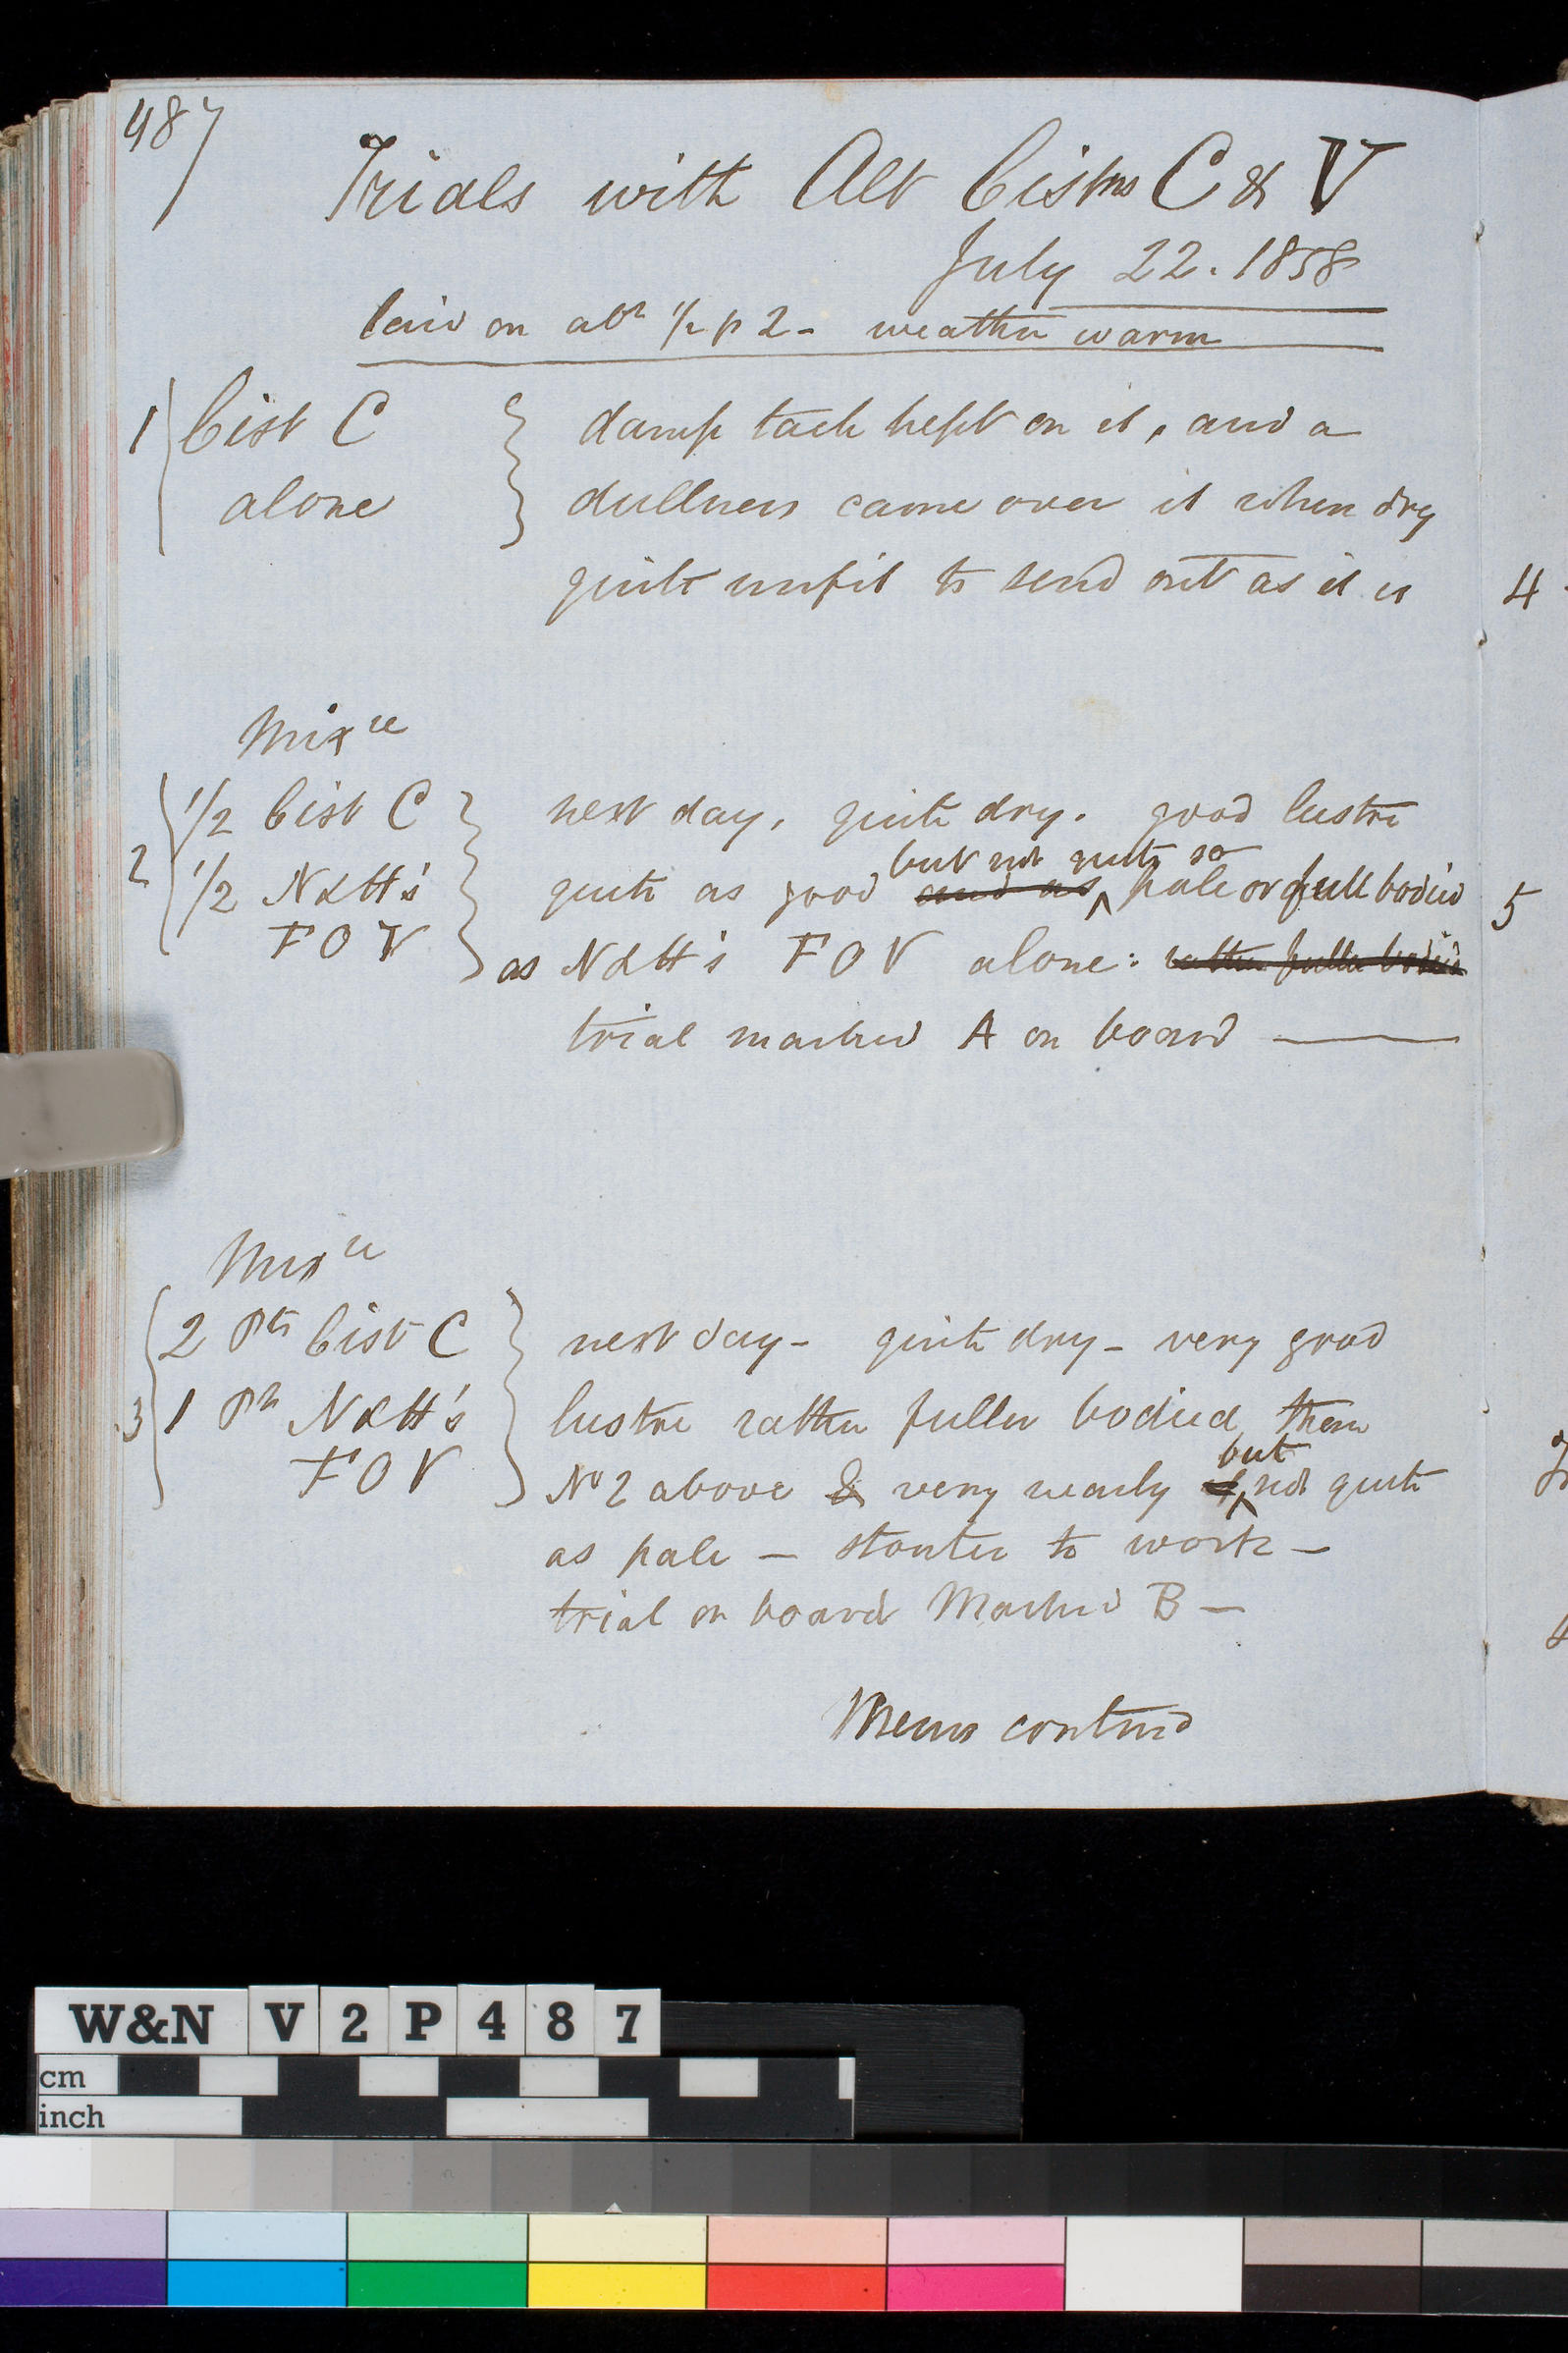 487
Trials with Alt Cistns C & V
July 22. 1858
laid on abt 1/2 p 2 - weather warm
1 Cist C
alone
damp tack kept on it, and a
dullness came over it when dry
quite unfit to send out as it is
4
Mixre
1/2 Cist C
2 1/2 N&H's
F O V
next day, quite dry. good lustre
but not quite so
quite as good and as pale or full bodied
as N&H's F O V alone: rather fuller bodied
trial marked A on board
5
Mixre
2 Pts Cist C
3 1 Pt N&H's
F O V
next day - quite dry - very good
lustre rather fuller bodied than
but
No 2 above & very nearly & not quite
as pale - stouter to work -
trial on board Marked B -
Mems contnd
W&N V 2 P 4 8 7
cm
inch